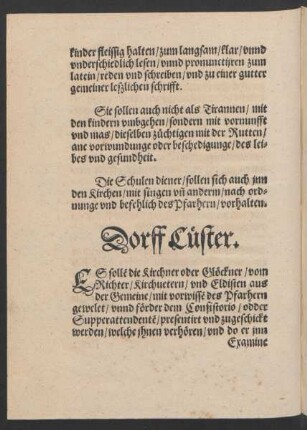 kinder fleissig halten/zum langsam/klar/vnnd
vnderschiedlich lesen/vnnd pronunctijren zum
latein/reden vnd schreiben/vnd zu einer gutter
gemeiner leßlichen schrifft.
Sie sollen auch nicht als Tirannen/mit
den kindern vmbgehen/sondern mit vornunfft
vnd mas/dieselben züchtigen mit der Rutten/
ane vorwundunge oder beschedigunge/des lei-
bes vnd gesundheit.
Die Schulen diener/sollen sich auch jnn
den Kirchen/mit singen vñ anderm/nach ord-
nunge vnd befehlich des Pfarhern/vorhalten.
Dorff Cüster.
ES solle die Kirchner oder Glöckner/vom
Richter/Kirchuetern/vnd Eldisten aus
der Gemeine/mit vorwisse des Pfarhern
gewelet/vnnd förder dem Consistorio/odder
Supperattendentē/presentirt vnd zugeschickt
werden/welche jhnen verhören/vnd do er jnn
Examine